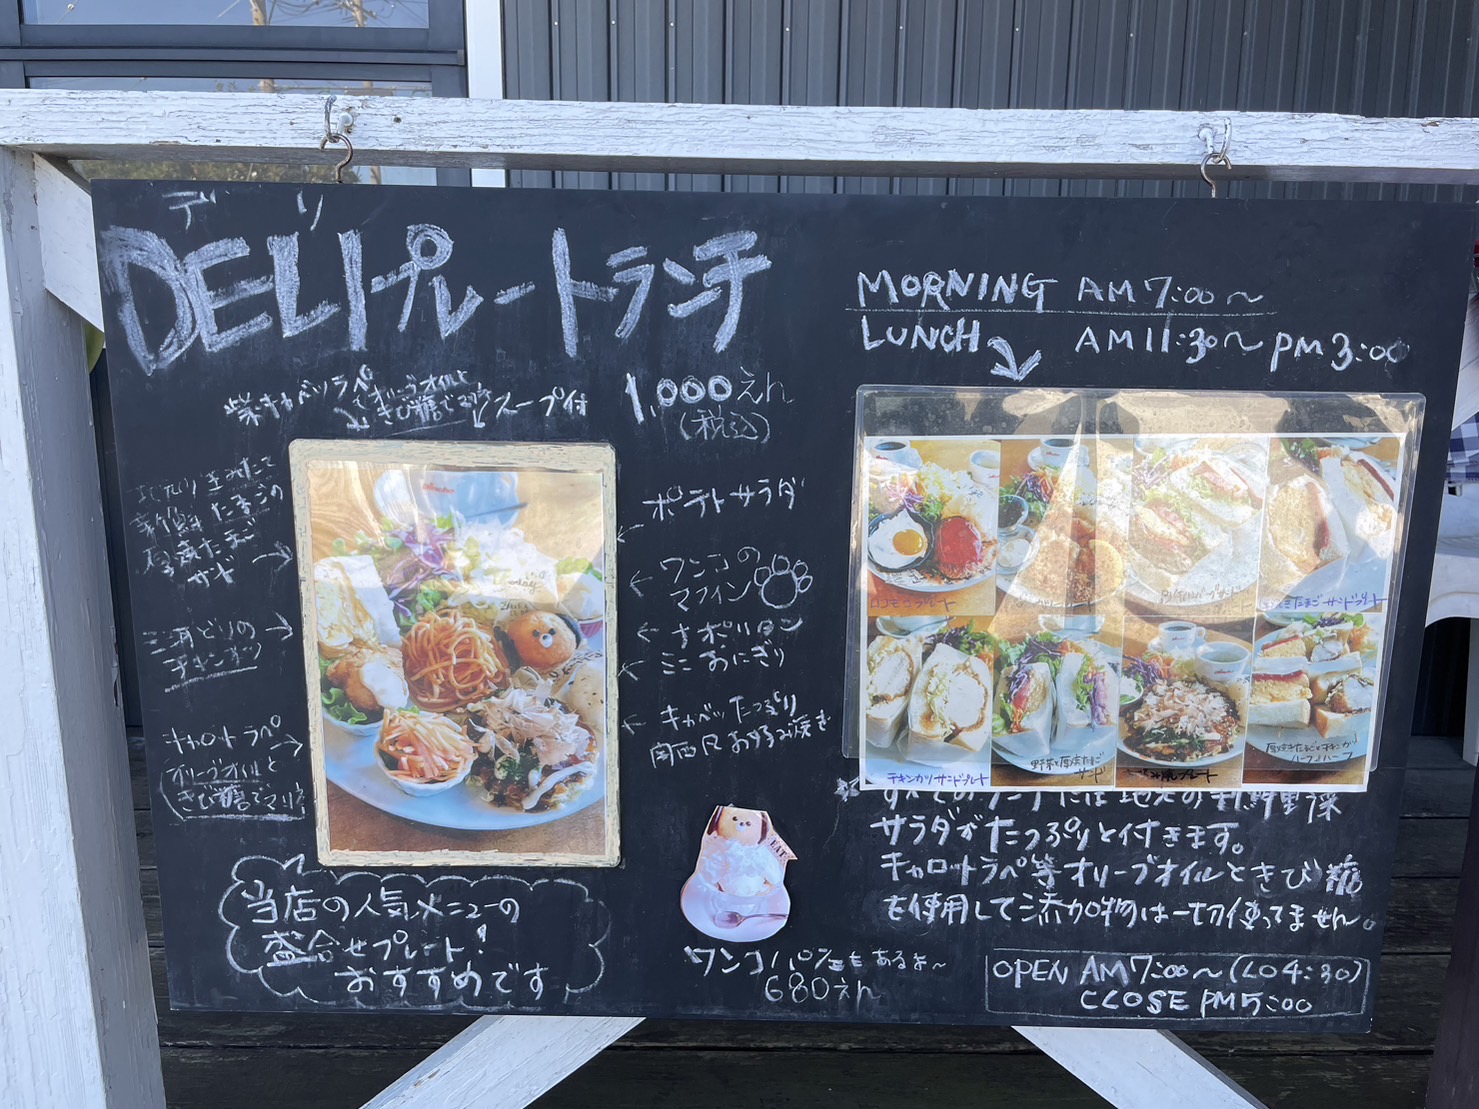 デ リ
DELIプレートランチ
紫キャベツラペ
オリーブオイルと
きび糖で
スープ付
1,000えん
(税込)
新鮮たまごの
厚焼たまご
サンド
三河どりの
チキンカツ
キャロットラペ
オリーブオイルと
きび糖でマリネ
ポテトサラダ
ワンコの
マフィン
ナポリタン
ミニおにぎり
キャベツたっぷり
関西風お好み焼き
当店の人気メニューの
盛合せプレート!
おすすめです
ワンコパフェもあるよ~
680えん
EAT
MORNING AM 7:00~
LUNCH AM 11:30~PM 3:00
ロコモコプレート
たまごサンドプレート
チキンカツサンドプレート
野菜と厚焼たまご
サンド
プレート
厚焼きたまごとチキンカツ
ハーフ&ハーフ
すべてのランチには地元の新鮮野菜
サラダがたっぷりと付きます。
キャロットラペ等オリーブオイルときび糖
を使用して添加物は一切使ってません。
OPEN AM7:00~(LO4:30)
CLOSE PM5:00